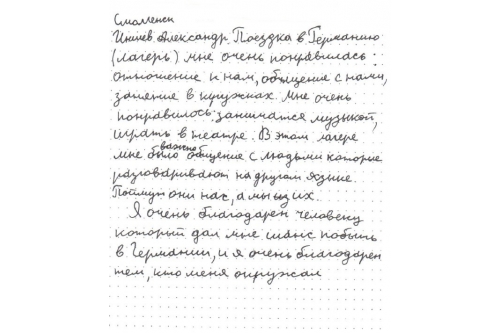 Смоленск
Иншев Александр Поездка в Германию
(лагерь) мне очень понравилась:
отношение к нам, общение с нами,
заняение в кружках. Мне очень
понравилось: заниматся музыкой,
играть в театре. В этом лагере
мне было важно общение с людьми которые
разговаривают на другом языке.
Поймут они нас, а мы из их.
Я очень благодарен человеку
который дал мне шанс побыть
в Германии, и я очень благодарен
тем, кто меня окружал